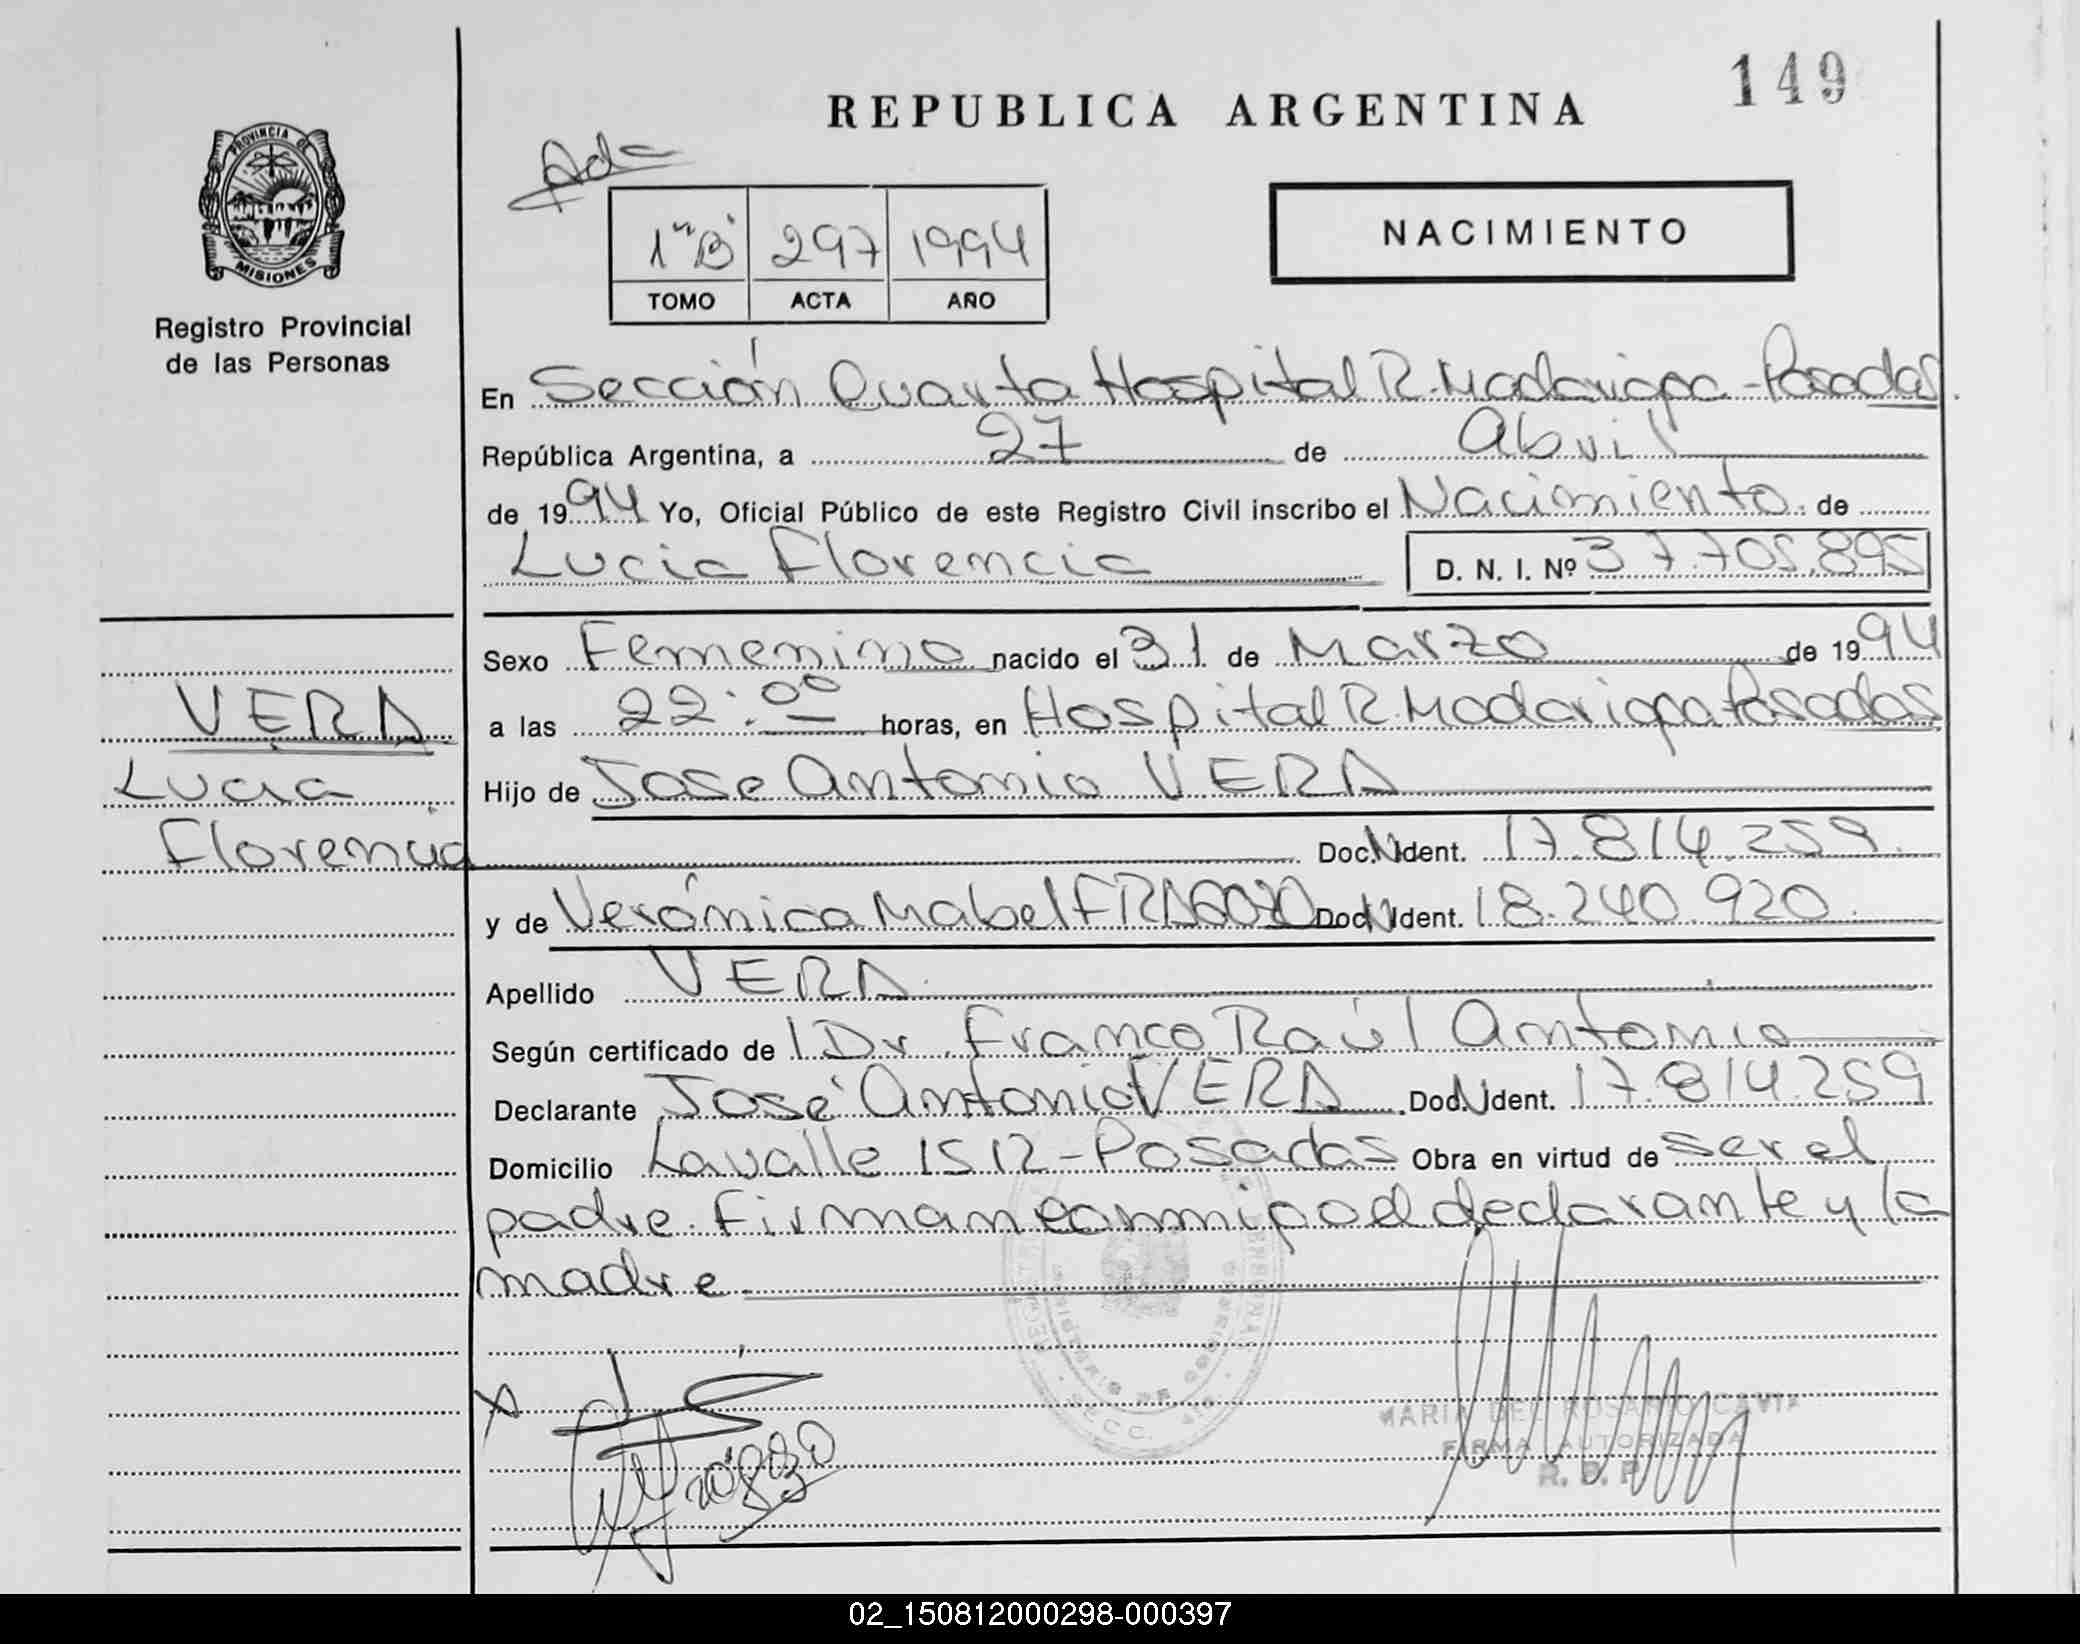 149
REPUBLICA ARGENTINA
PROVINCIA DE
MISIONES
Registro Provincial
de las Personas
1º"B" 297 1994
TOMO ACTA AÑO
NACIMIENTO
En Sección Cuarta Hospital R. Madariaga - Posadas
República Argentina, a 27 de Abril
de 1994 Yo, Oficial Público de este Registro Civil inscribo el Nacimiento de
Lucia Florencia D. N. I. Nº 37.705.895
Sexo Femenino nacido el 31 de Marzo de 1994
VERA
a las 22:00 horas, en Hospital R. Madariaga Posadas
Lucia
Hijo de Jose Antonio VERA
Florencia
Doc. N. Ident. 17.814.259.
y de Verónica Mabel Doc. N. Ident. 18.240.920.
Apellido VERA
Según certificado de l Dr. Franco Raúl Antonio
Declarante José Antonio VERA Doc. N. Ident. 17.814.259
Domicilio Lavalle 1512 - Posadas Obra en virtud de ser el
padre. Firman conmigo el declarante y la
madre
MARIA DEL ROSARIO CAVIA
FIRMA AUTORIZADA
R. P. P.
02_150812000298-000397